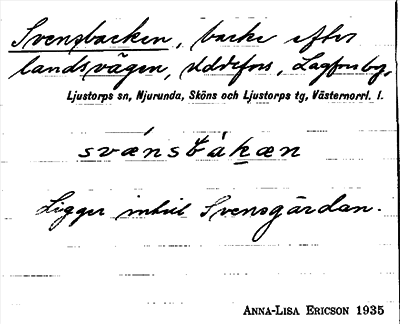 Svensbacken, backe efter
landsvägen, Uddefors, Lagfors by,
Ljustorps sn, Njurunda, Sköns och Ljustorps tg, Västernorrl. l.
svænsbàkæn
Ligger intill Svensgårdan.
ANNA-LISA ERICSON 1935